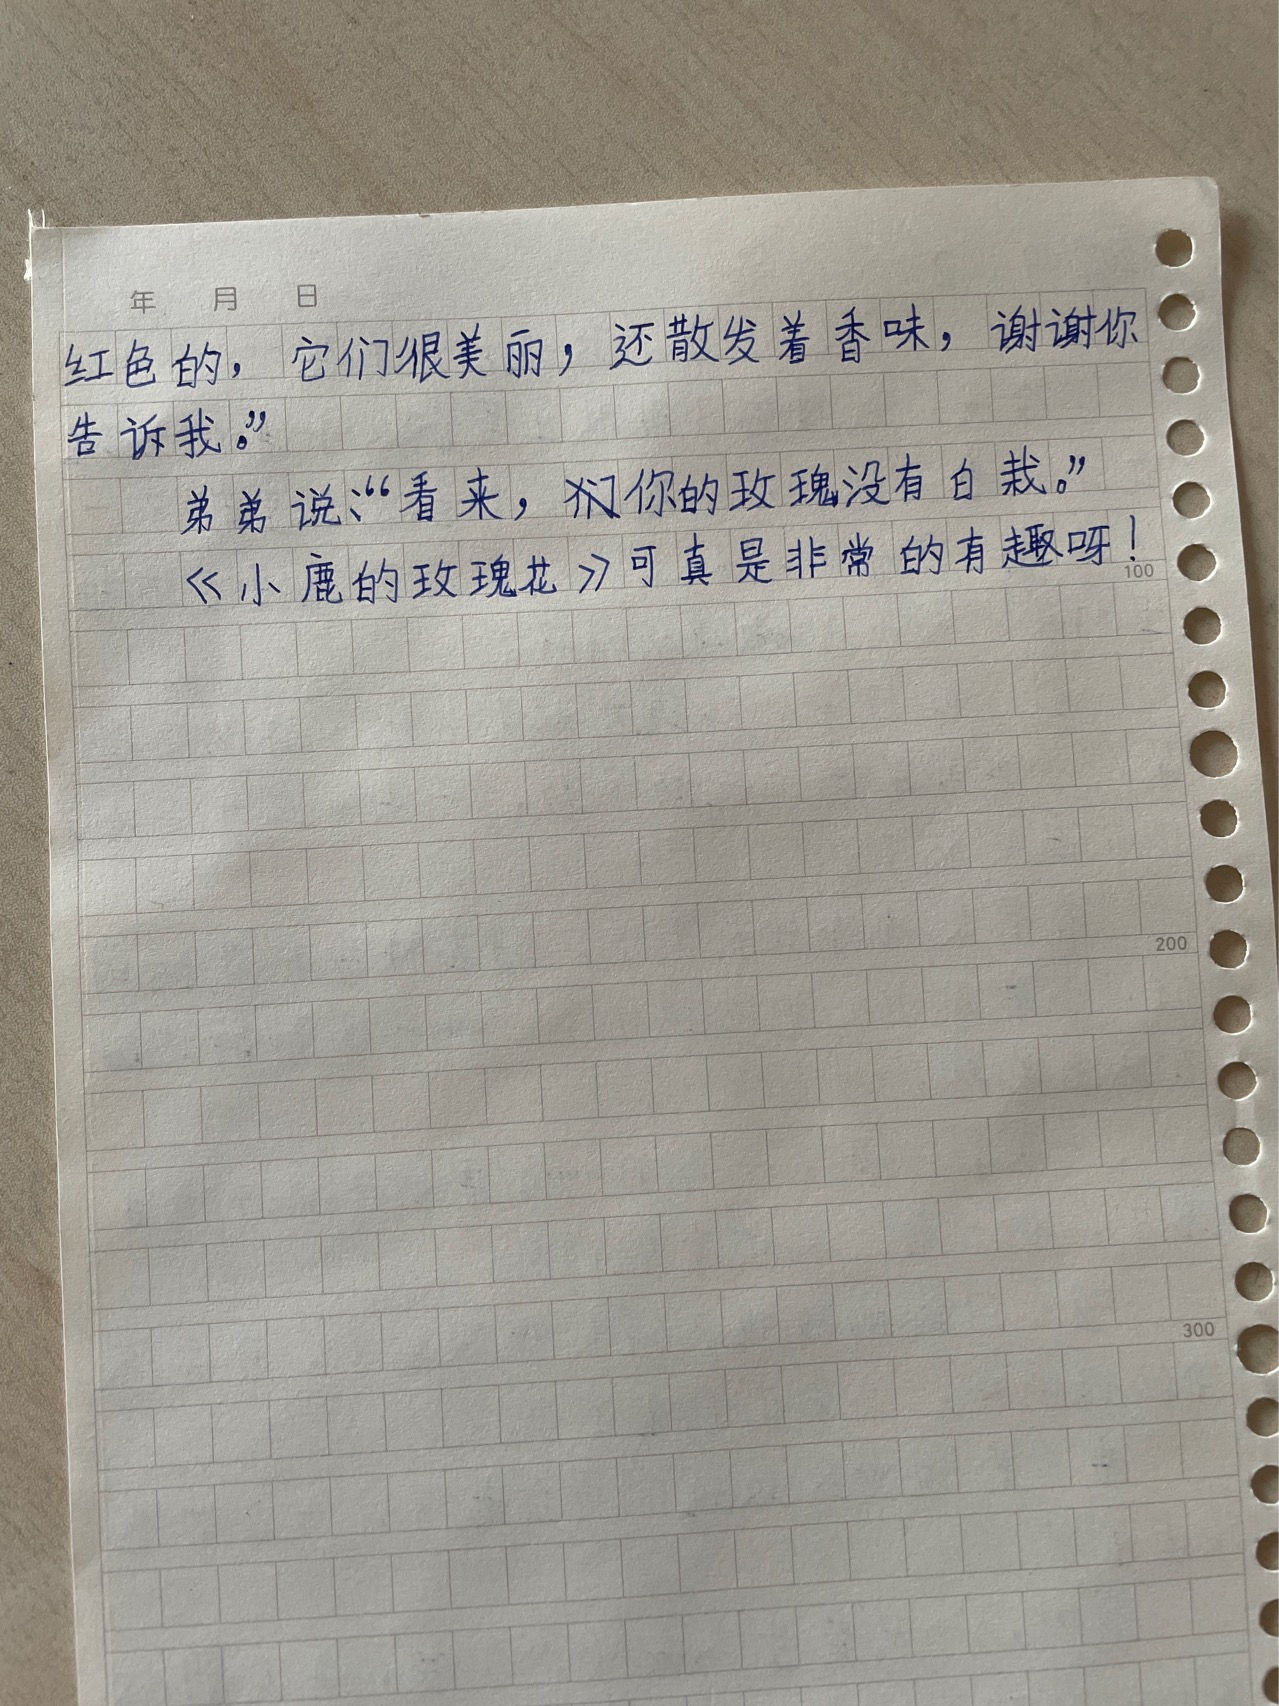 年 月 日
红色的，它们很美丽，还散发着香味，谢谢你
告诉我。”
弟弟说：“看来，你的玫瑰没有白栽。”
《小鹿的玫瑰花》可真是非常的有趣呀！
100
200
300